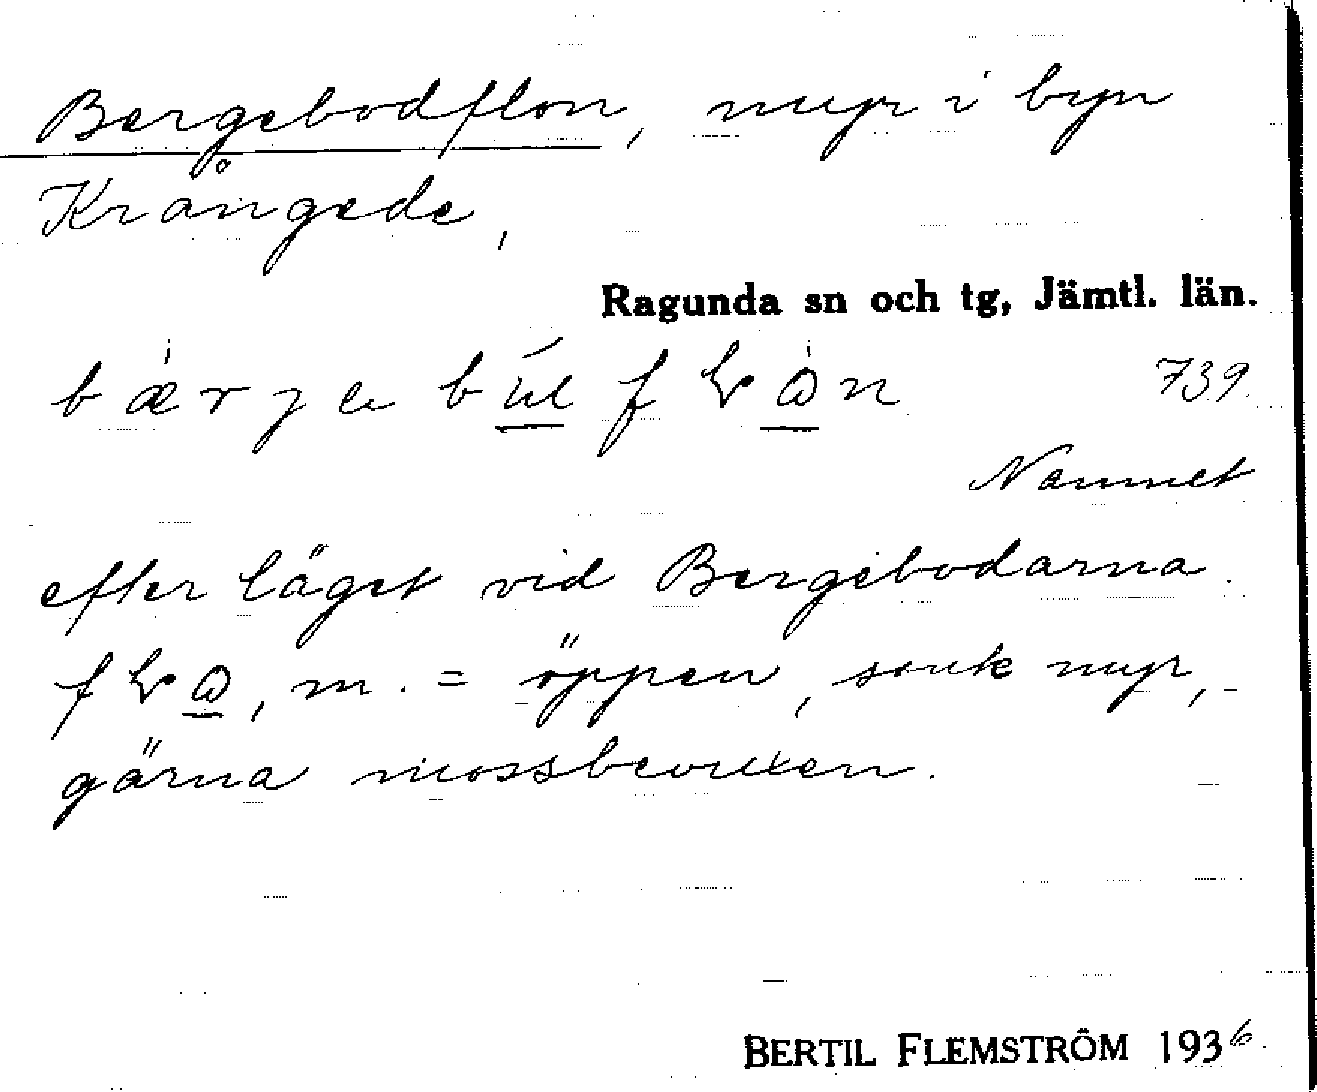 Bergebodflon, myr i byn
Krångede,
Ragunda sn och tg, Jämtl. län.
739.
Namnet
efter läget vid Bergebodarna.
m. = öppen, sank myr,
gärna mossbevuxen.
BERTIL FLEMSTRÖM 1936.